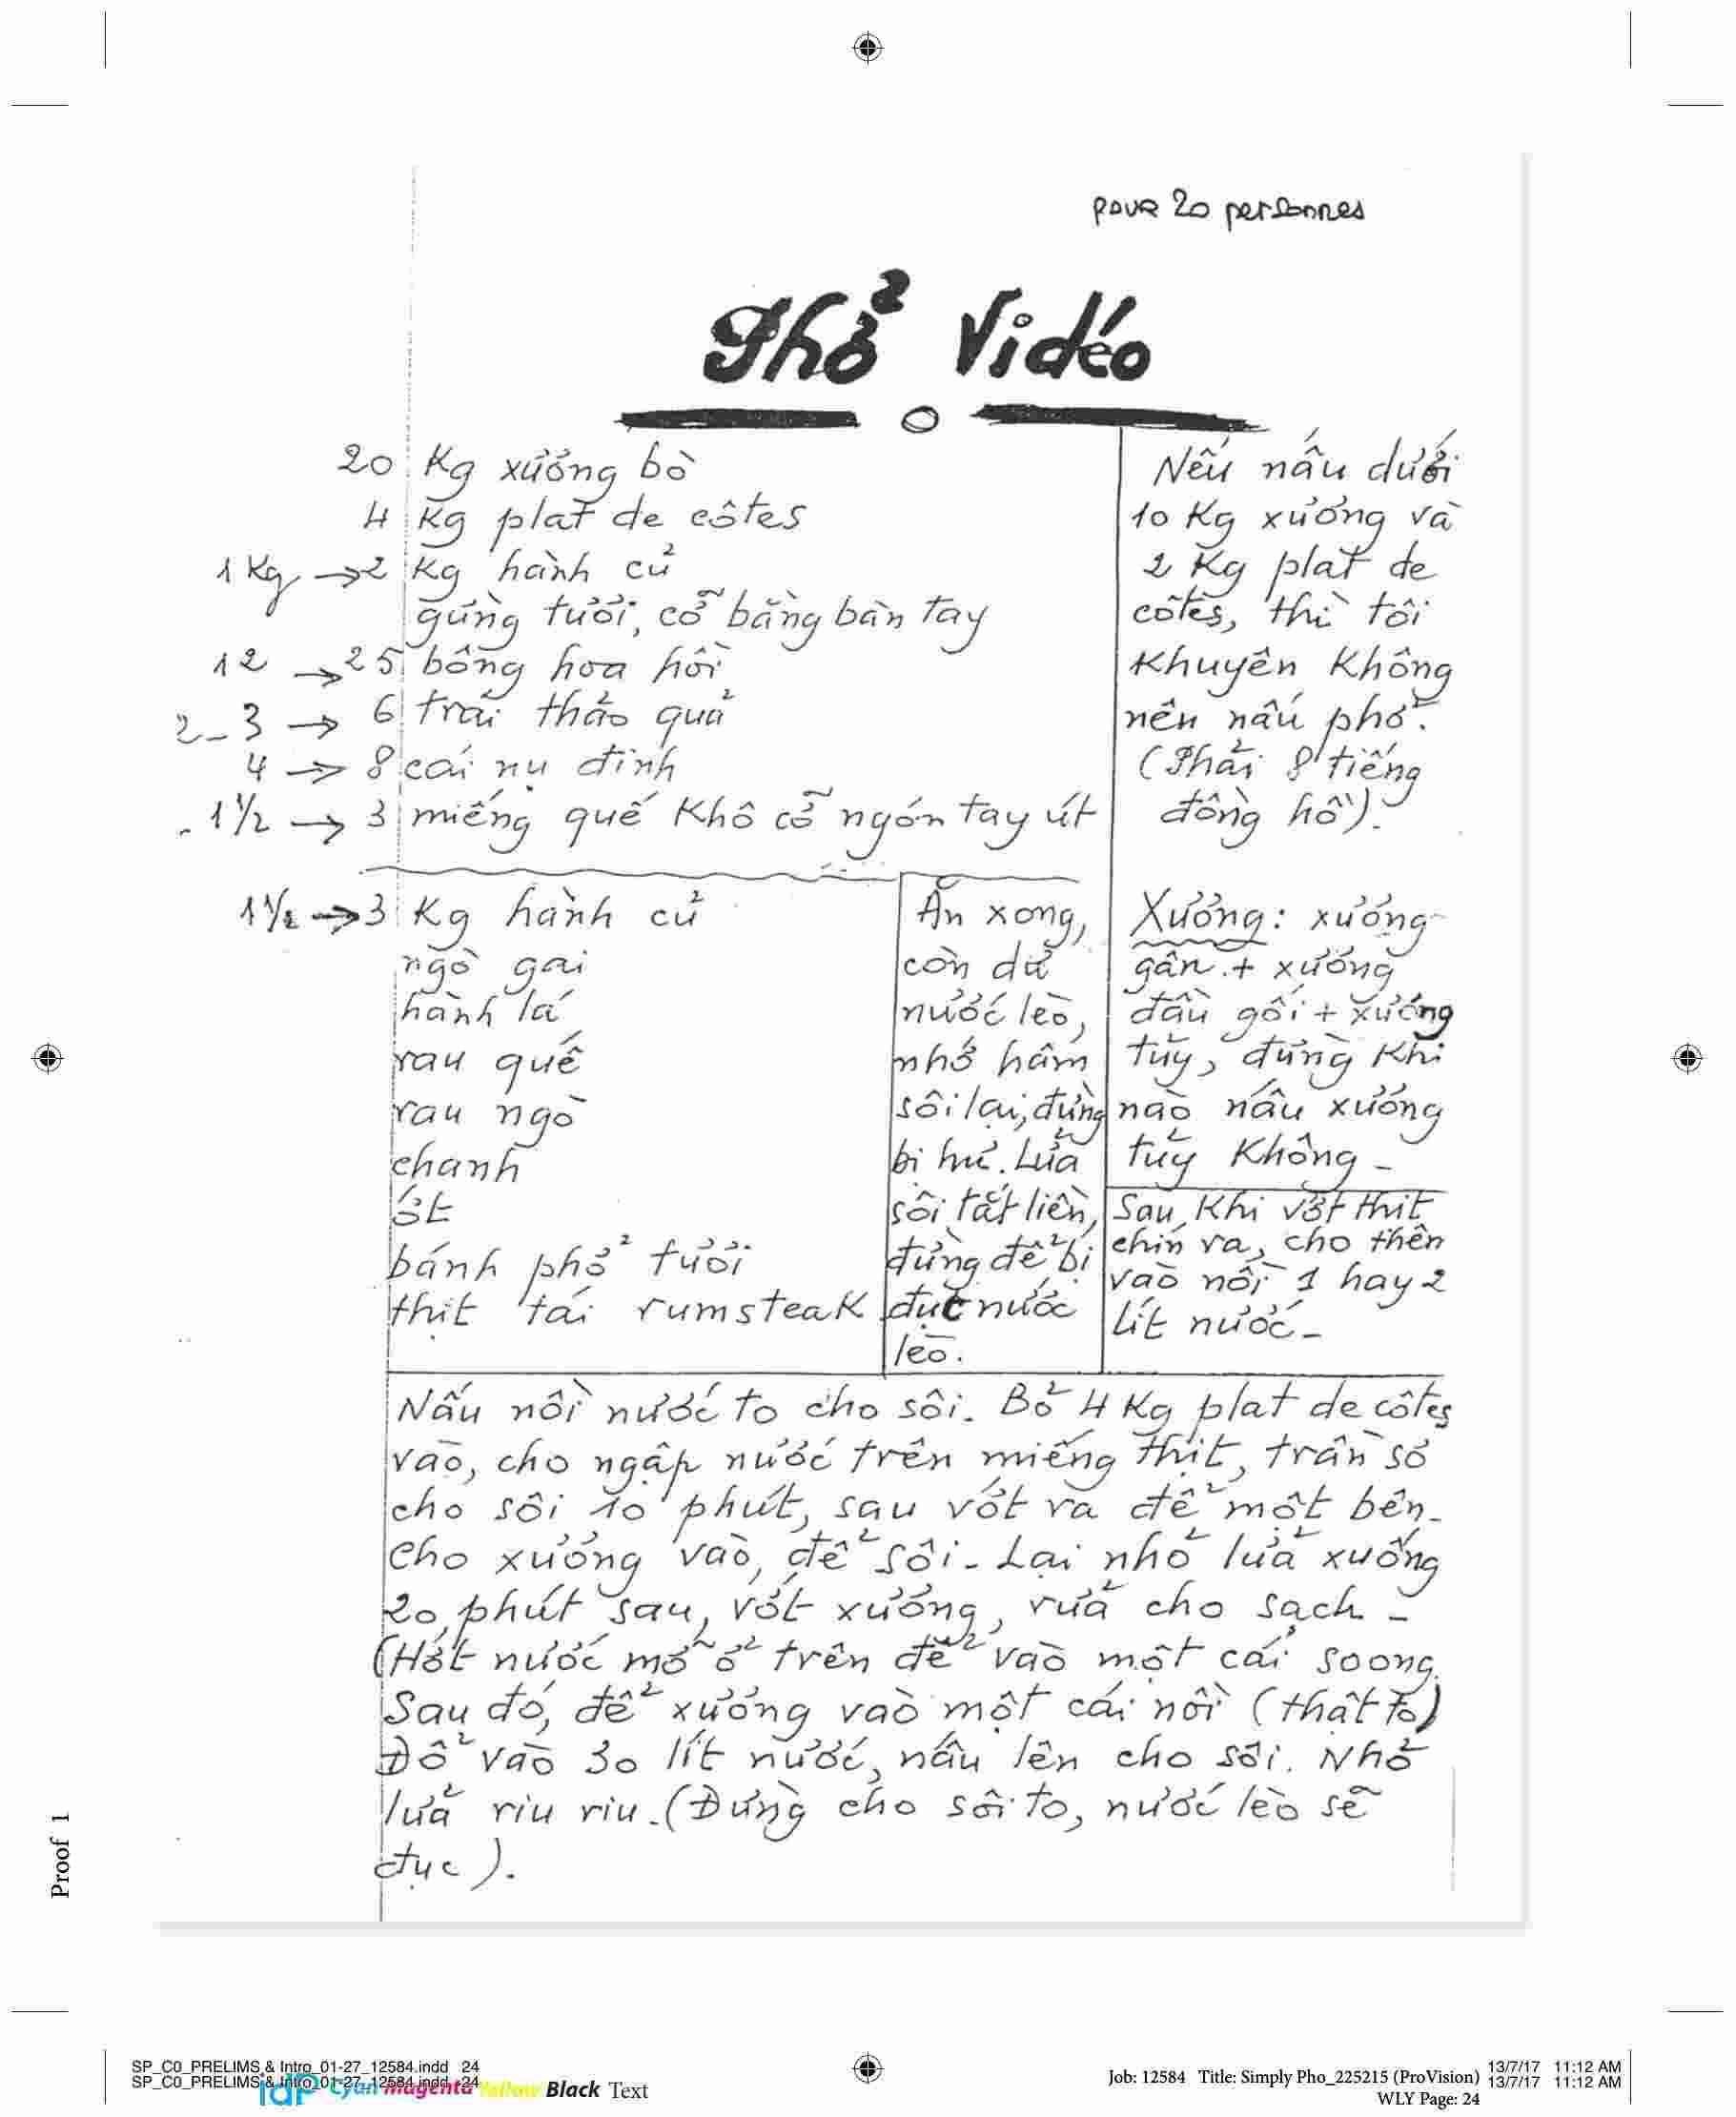 pour 20 personnes
Phở Vidéo
20 Kg xương bò
4 kg plat de côtes
1 Kg → 2 kg hành củ
gừng tươi, cỡ bằng bàn tay
12 → 25 bông hoa hồi
2-3 → 6 trái thảo quả
4 → 8 cái nụ đinh
1 1/2 → 3 miếng quế khô cỡ ngón tay út
Nếu nấu dưới
10 Kg xương và
2 Kg plat de
côtes, thì tôi
khuyên không
nên nấu phở.
(Phải 8 tiếng
đồng hồ).
1 1/2 → 3 Kg hành củ
ngò gai
hành lá
rau quế
rau ngò
chanh
ớt
bánh phở tươi
thịt tái rumsteak
Ăn xong,
còn dư
nước lèo,
nhớ hâm
sôi lại, đừng
bị hư. Lửa
sôi tắt liền,
đừng để bị
đục nước
lèo.
Xương: xương
gân + xương
đầu gối + xương
tủy, đừng khi
nào nấu xương
tủy không -
Sau khi vớt thịt
chín ra, cho thên
vào nồi 1 hay 2
lít nước -
Nấu nồi nước to cho sôi. Bỏ 4 Kg plat de côtes
vào, cho ngập nước trên miếng thịt, trần sơ
cho sôi 10 phút, sau vớt ra để một bên -
cho xương vào, để sôi - Lại nhỏ lửa xuống
20 phút sau, vớt xương, rửa cho sạch -
(Hớt nước mỡ ở trên để vào một cái soong.
Sau đó, để xương vào một cái nồi (thật to)
Đổ vào 30 lít nước, nấu lên cho sôi. Nhỏ
lửa riu riu. (Đừng cho sôi to, nước lèo sẽ
đục).
Proof 1
SP_C0_PRELIMS & Intro_01-27_12584.indd 24
SP_C0_PRELIMS & Intro_01-27_12584.indd 24
idP Cyan Magenta Yellow Black Text
Job: 12584 Title: Simply Pho_225215 (ProVision)
WLY Page: 24
13/7/17 11:12 AM
13/7/17 11:12 AM